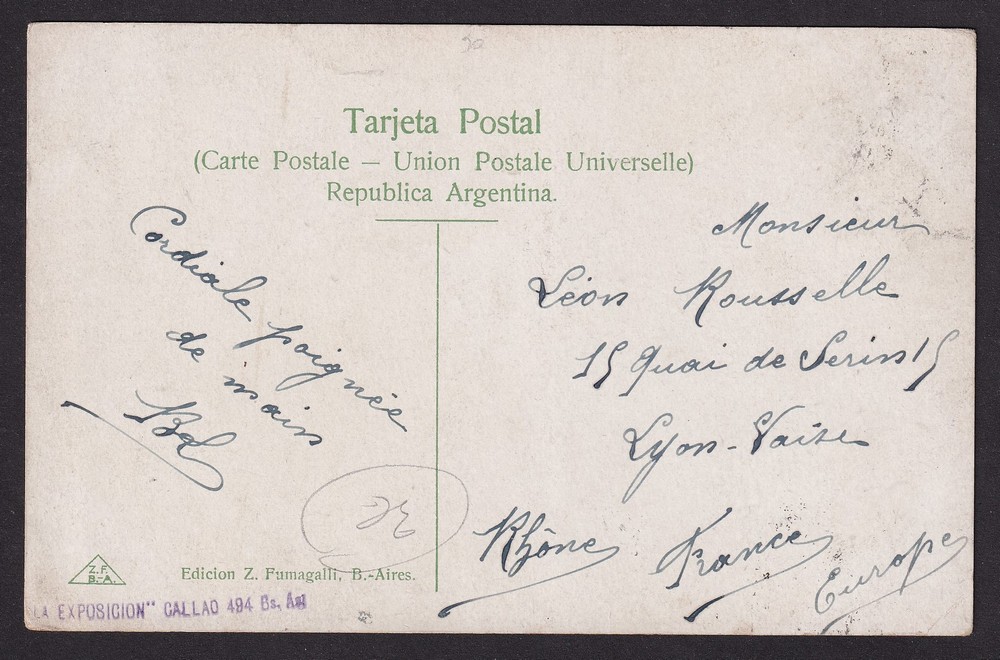 Tarjeta Postal
(Carte Postale — Union Postale Universelle)
Republica Argentina.
Cordiale poignée
de main
Monsieur
Léon Rousselle
15 Quai de Serin 15
Lyon-Vaise
Rhône France Europe
Z.F.
B.-A.
Edicion Z. Fumagalli, B.-Aires.
LA EXPOSICION" CALLAO 494 Bs. As